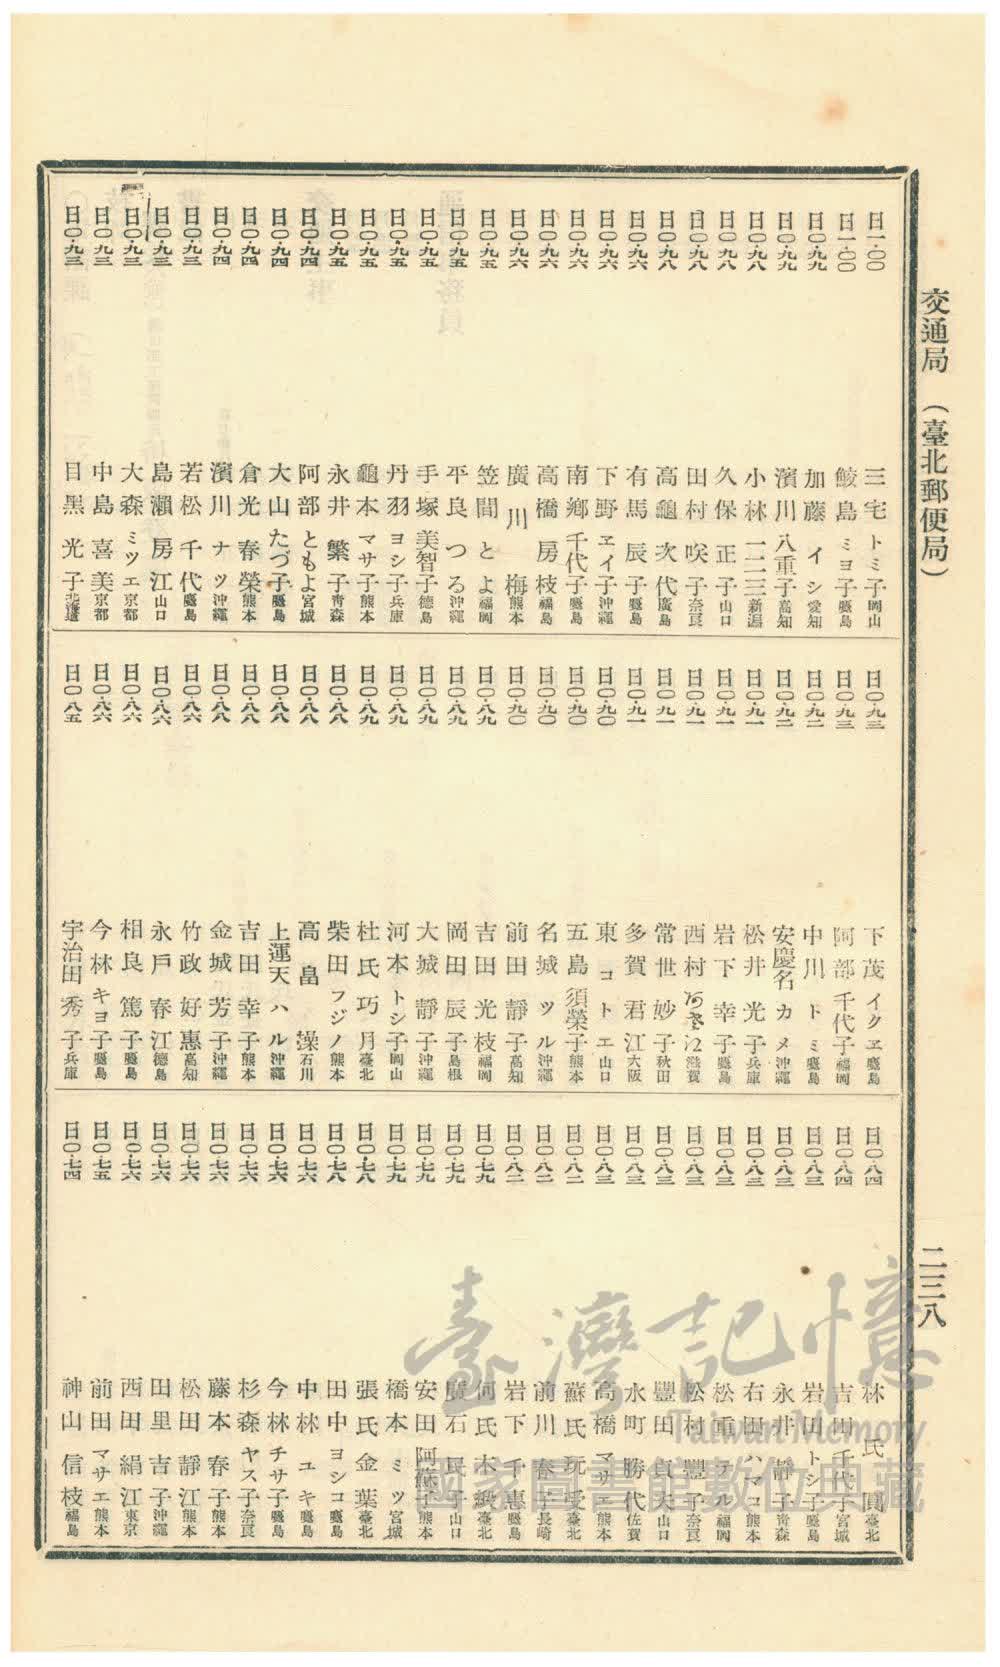 交通局　（臺北郵便局）
二三八
日一・〇〇　三宅トミ子　岡山
日一・〇〇　鮫島ミヨ子　鹿島
日〇・九九　加藤イシ　愛知
日〇・九九　濱川八重子　高知
日〇・九八　小林一二三　新潟
日〇・九八　久保正子　山口
日〇・九八　田村咲子　奈良
日〇・九八　高龜次代　廣島
日〇・九六　有馬辰子　鹿島
日〇・九六　下野ヱイ子　沖繩
日〇・九六　南鄕千代子　鹿島
日〇・九六　高橋房枝　福島
日〇・九六　廣川梅　熊本
日〇・九五　笠間とよ　福岡
日〇・九五　平良つる　沖繩
日〇・九五　手塚美智子　德島
日〇・九五　丹羽ヨシ子　兵庫
日〇・九五　龜本マサ子　熊本
日〇・九五　永井繁子　靑森
日〇・九四　阿部ともよ　宮城
日〇・九四　大山たづ子　鹿島
日〇・九四　倉光春榮　熊本
日〇・九四　濱川ナツ　沖繩
日〇・九三　若松千代　鹿島
日〇・九三　島瀨房江　山口
日〇・九三　大森ミツエ　京都
日〇・九三　中島喜美　京都
日〇・九三　目黑光子　北海道
日〇・九三　下茂イクヱ　鹿島
日〇・九三　阿部千代子　福岡
日〇・九二　中川トミ　鹿島
日〇・九二　安慶名カメ　沖繩
日〇・九一　松井光子　兵庫
日〇・九一　岩下幸子　鹿島
日〇・九一　西村　滋賀
日〇・九一　常世妙子　秋田
日〇・九一　多賀君江　大阪
日〇・九〇　東コトエ　山口
日〇・九〇　五島須榮子　熊本
日〇・九〇　名城ツル　沖繩
日〇・九〇　前田靜子　高知
日〇・八九　吉田光枝　福岡
日〇・八九　岡田辰子　島根
日〇・八九　大城靜子　沖繩
日〇・八九　河本トシ子　岡山
日〇・八九　杜氏巧月　臺北
日〇・八八　柴田フジノ　熊本
日〇・八八　高畠溱　石川
日〇・八八　上運天ハル　沖繩
日〇・八八　吉田幸子　熊本
日〇・八八　金城芳子　沖繩
日〇・八六　竹政好惠　高知
日〇・八六　永戶春江　德島
日〇・八六　相良篤子　鹿島
日〇・八六　今林キヨ子　鹿島
日〇・八五　宇治田秀子　兵庫
日〇・八四　林氏圓　臺北
日〇・八四　吉田千代子　宮城
日〇・八三　岩田トシ子　鹿島
日〇・八三　永井靜子　靑森
日〇・八三　右田ハマコ　熊本
日〇・八三　松重テル　福岡
日〇・八三　松村豐子　奈良
日〇・八三　豐田貞夫　山口
日〇・八三　水町勝代　佐賀
日〇・八三　高橋マサエ　熊本
日〇・八二　蘇氏玩愛　臺北
日〇・八二　前川春子　長崎
日〇・八二　岩下千惠　鹿島
日〇・七九　何氏木緞　臺北
日〇・七九　廣石良子　山口
日〇・七九　安田阿薩子　熊本
日〇・七九　橋本ミツ　宮城
日〇・七八　張氏金葉　臺北
日〇・七八　田中ヨシコ　鹿島
日〇・七六　中林ユキ　鹿島
日〇・七六　今林チサ子　鹿島
日〇・七六　杉森ヤス子　奈良
日〇・七六　藤本春子　熊本
日〇・七六　松田靜江　熊本
日〇・七六　田里吉子　沖繩
日〇・七六　西田絹江　東京
日〇・七五　前田マサエ　熊本
日〇・七四　神山信枝　福島
臺灣記憶
Taiwan Memory
國家圖書館數位典藏